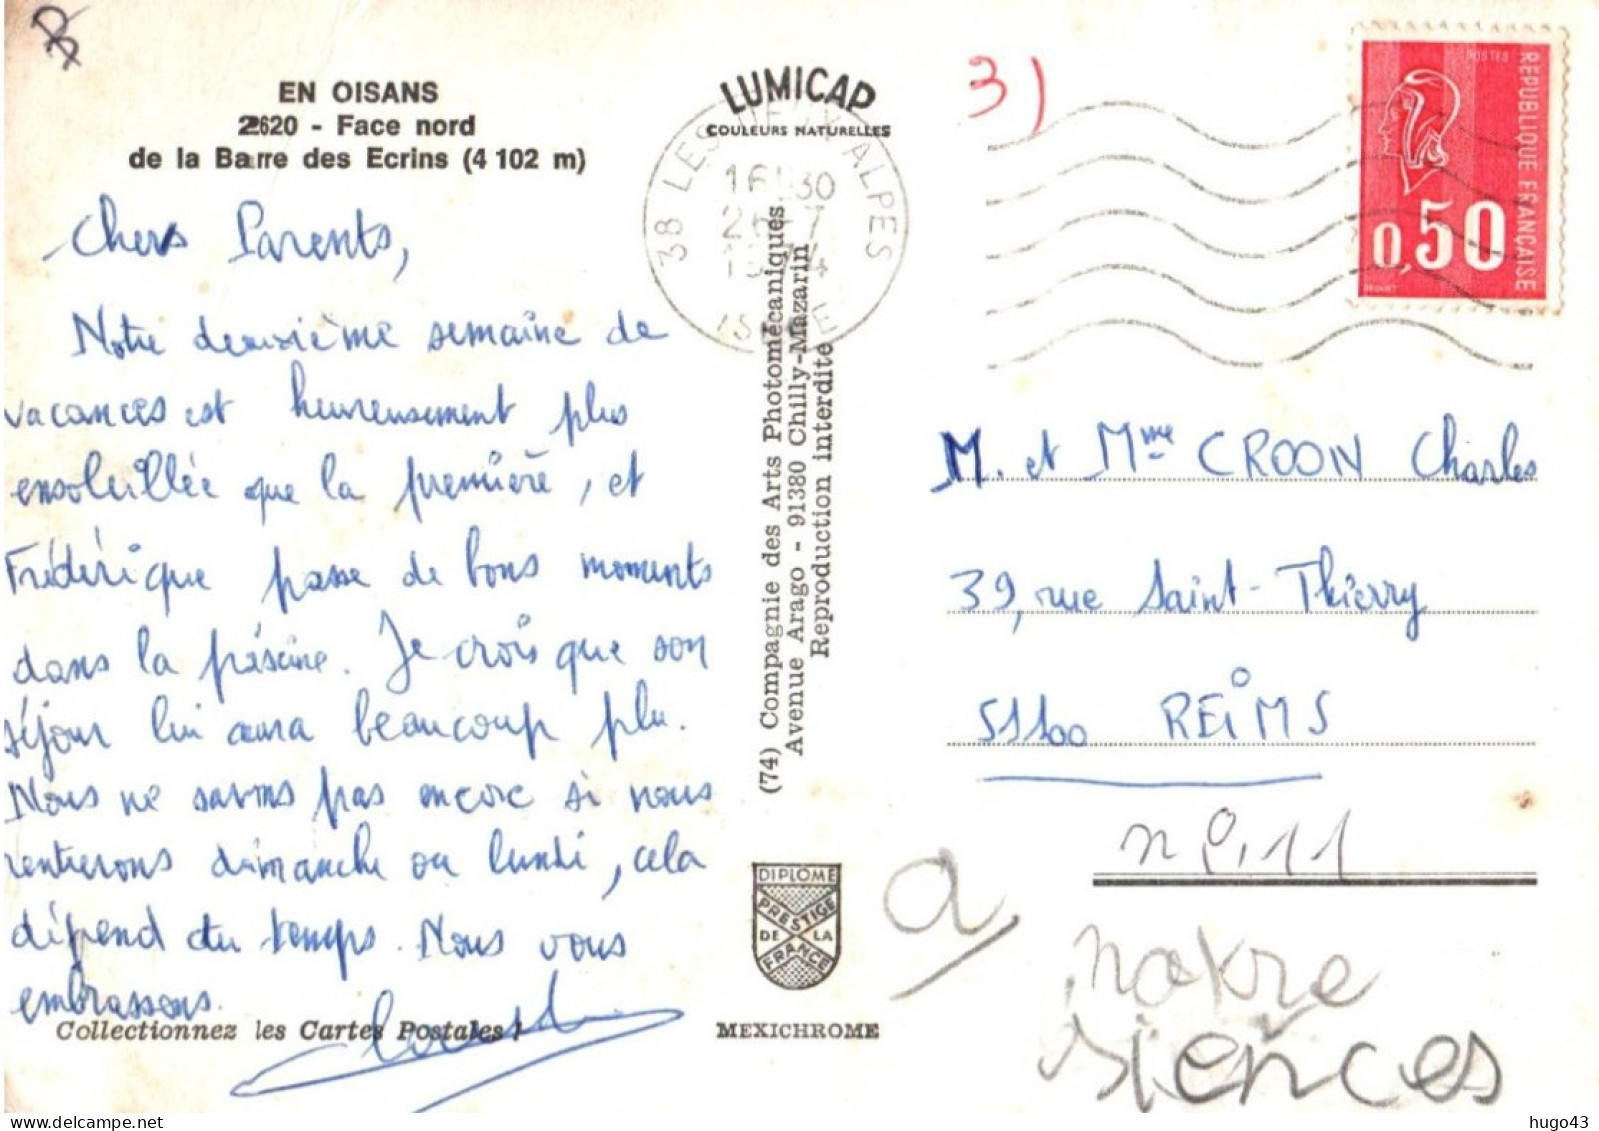 EN OISANS
2620 - Face nord
de la Barre des Ecrins (4 102 m)
Chers Parents,
Notre deuxième semaine de
vacances est heureusement plus
ensoleillée que la première, et
Frédérique passe de bons moments
dans la piscine. Je crois que son
séjour lui aura beaucoup plu.
Nous ne savons pas encore si nous
rentrerons dimanche ou lundi, cela
dépend du temps. Nous vous
embrassons.
Collectionnez les Cartes Postales !
LUMICAP
COULEURS NATURELLES
38 LES DEUX ALPES
16H30
26-7
1974
ISERE
(74) Compagnie des Arts Photomécaniques
Avenue Arago - 91380 Chilly-Mazarin
Reproduction interdite
DIPLOME
PRESTIGE
DE LA
FRANCE
MEXICHROME
3)
POSTES
REPUBLIQUE FRANÇAISE
0,50
M. et Mme CROON Charles
39, rue Saint-Thierry
51100 REiMS
a
siences
hugo43